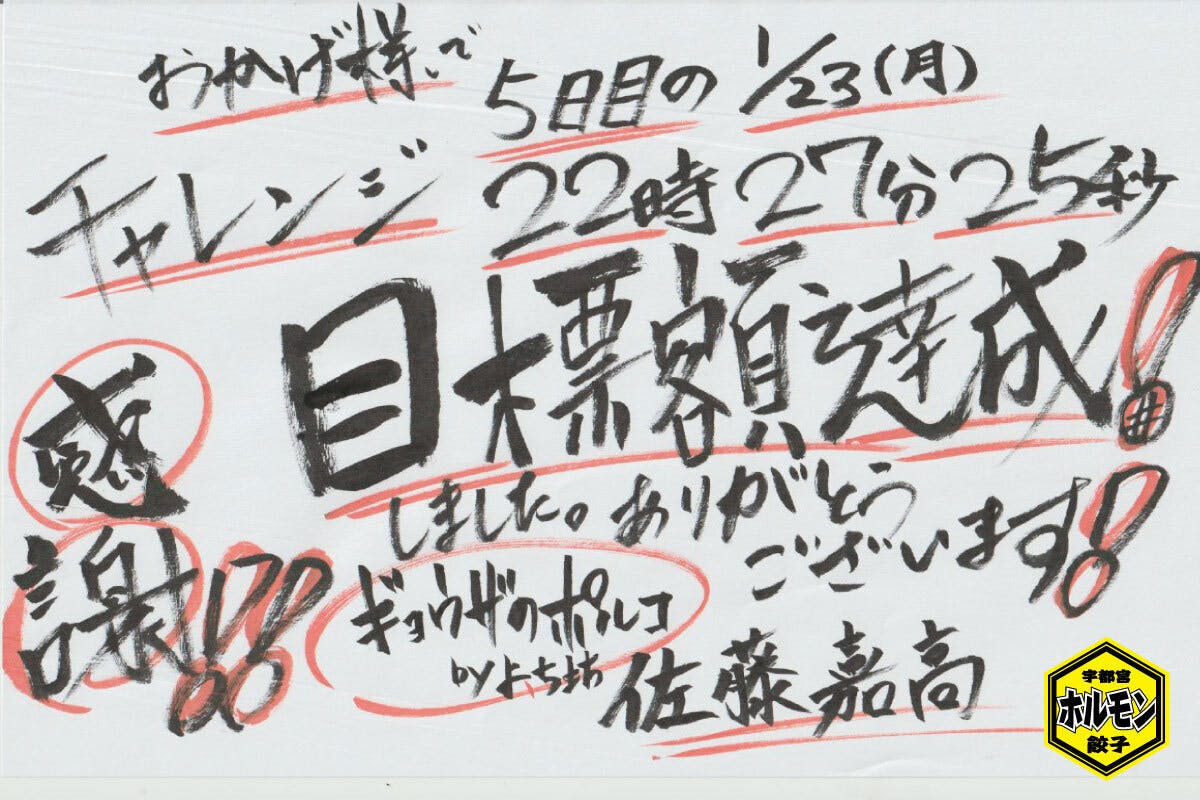 おかげ様で
チャレンジ
5日目の 1/23(月)
22時27分25秒
目標額達成!
しました。ありがとう
ございます!
感
謝!!
ギョウザのポルコ
by よっちまち
佐藤嘉高
宇都宮
ホルモン
餃子